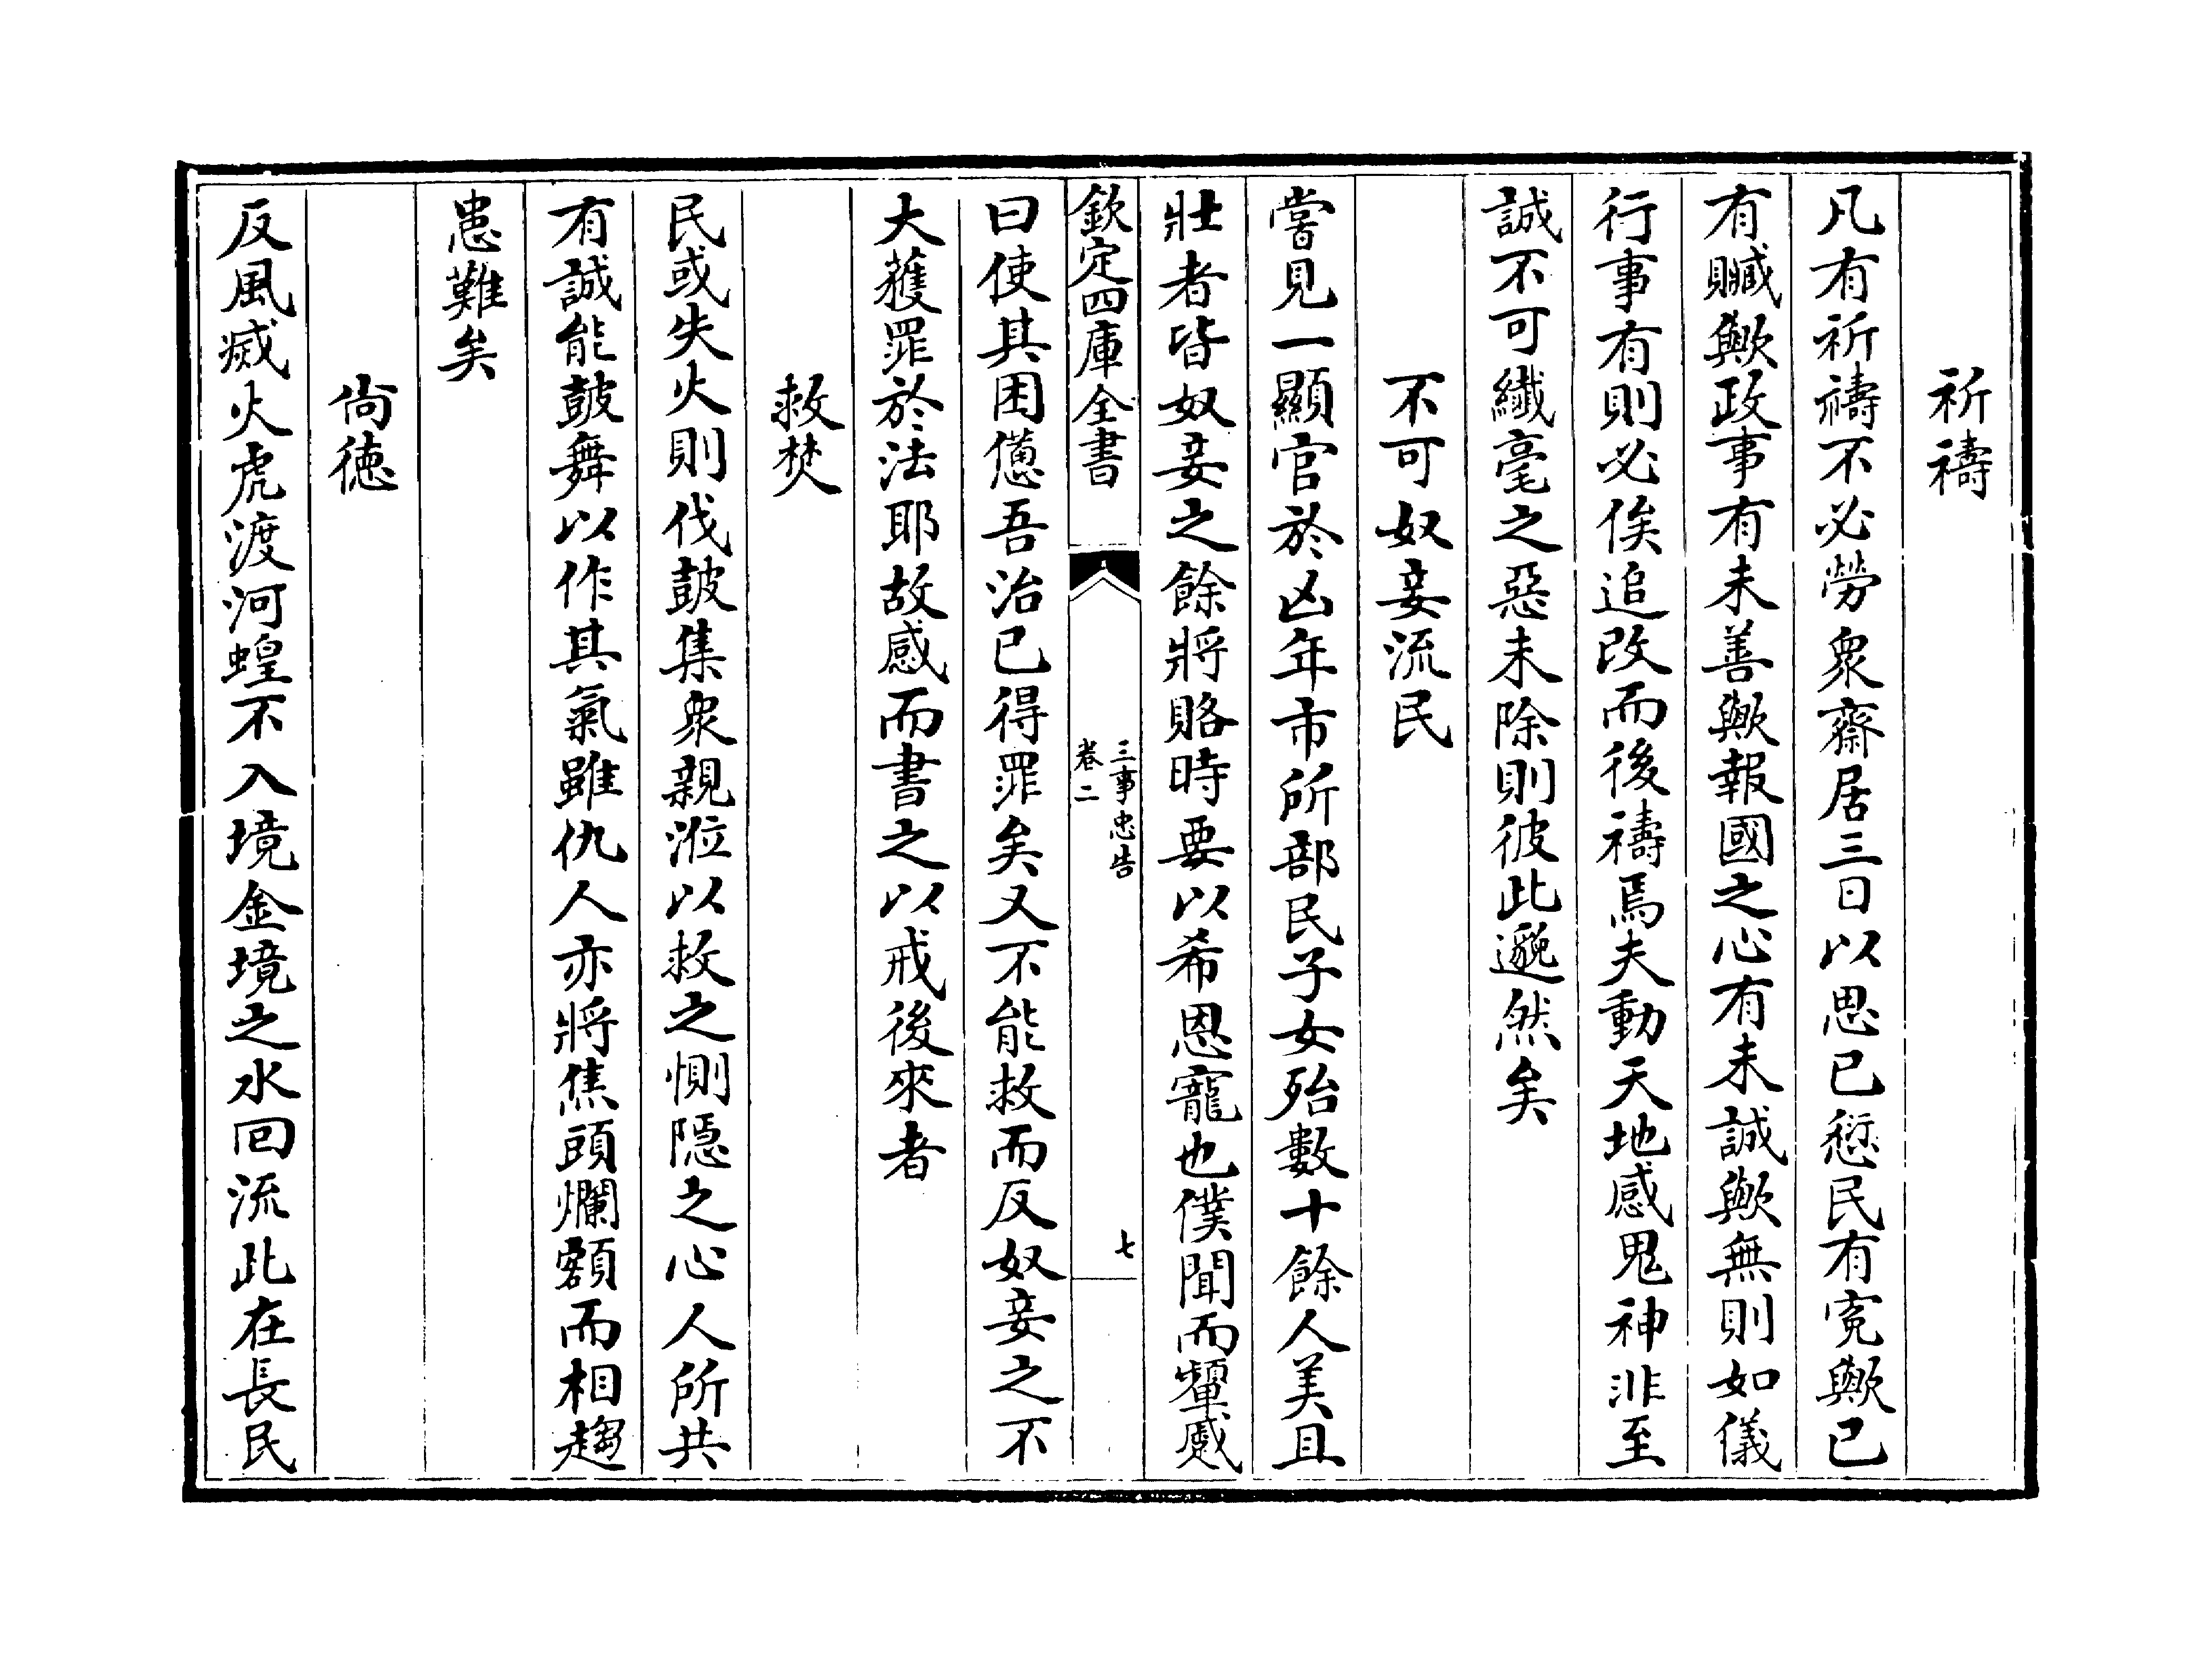 祈禱
凡有祈禱不必勞衆齋居三日以思已愆民有寃歟已
有贓歟政事有未善歟報國之心有未誠歟無則如儀
行事有則必俟追改而後禱焉夫動天地感鬼神非至
誠不可纎毫之惡未除則彼此邈然矣
不可奴妾流民
嘗見一顯官於凶年市所部民子女殆數十餘人美且
壯者皆奴妾之餘將賂時要以希恩寵也僕聞而顰蹙
欽定四庫全書
三事忠告
卷二
七
曰使其困憊吾治已得罪矣又不能救而反奴妾之不
大獲罪於法耶故感而書之以戒後來者
救焚
民或失火則伐鼓集衆親涖以救之惻隠之心人所共
有誠能鼓舞以作其氣雖仇人亦將焦頭爛額而相趨
患難矣
尚徳
反風滅火虎渡河蝗不入境金境之水回流此在長民